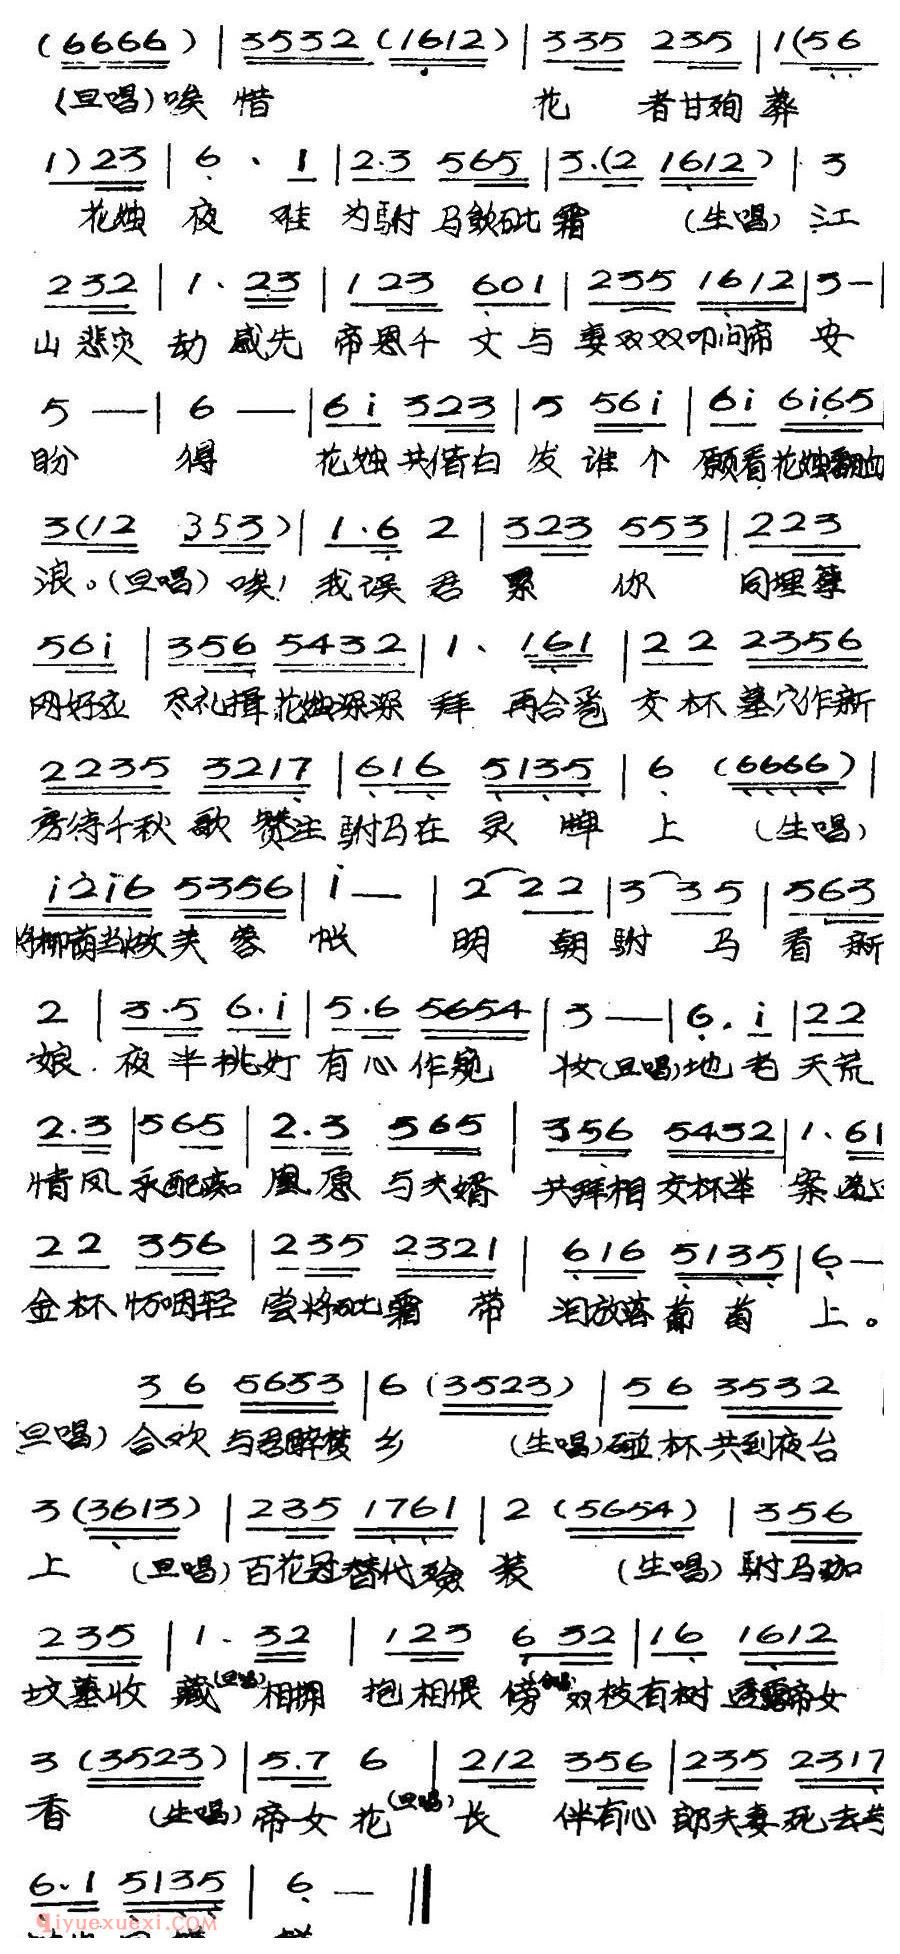 (6666) | 3532 (1612) | 335 235 | 1(56
(旦唱)唉 惜 花 者甘殉 葬
1) 23 | 6 . 1 | 2.3 565 | 3.(2 1612) | 3
花烛 夜 难 为驸 马饮砒 霜 (生唱) 江
232 | 1 . 23 | 123 601 | 235 1612 | 3 — |
山 悲灾 劫 感先 帝恩千 丈 与 妻双双叩问帝 安
5 — | 6 — | 6i 323 | 5 56i | 6i 6i65
盼 得 花烛 共偕白 发 谁 个 愿看花烛翻血
3(12 353) | 1.6 2 | 323 553 | 223
浪。(旦唱) 唉! 我误 君 累 你 同埋孽
56i | 356 5432 | 1 . 161 | 22 2356
网好应 尽礼揖花烛深深 拜 再合卺 交 杯 墓穴作新
2235 3217 | 616 5135 | 6 (6666) |
房待千秋 歌 赞注驸马在 灵 牌 上 (生唱)
i2i6 5356 | i — | 2 22 | 3 35 | 563
将柳荫当做芙 蓉 帐 明 朝 驸 马 看 新
2 | 3.5 6.i | 5.6 5654 | 3 — | 6. i | 22
娘. 夜 半挑灯 有心 作窥 妆(旦唱)地 老 天荒
2.3 | 565 | 2.3 565 | 356 5432 | 1.61
情凤 永配痴 凰愿 与夫婿 共拜相 交杯举 案
22 356 | 235 2321 | 616 5135 | 6 —
金杯 怕咽轻 尝将砒霜 带 泪放落葡 萄 上。
36 5653 | 6 (3523) | 56 3532
旦唱) 合欢 与君醉梦 乡 (生唱)碰杯 共到夜台
3 (3613) | 235 1761 | 2 (5654) | 356
上 (旦唱) 百花冠替代殓 装 (生唱) 驸马珈
235 | 1 . 32 | 123 6 32 | 16 1612
坟墓收 藏(旦唱)相拥 抱相偎 傍 双枝有树 透露帝女
3 (3523) | 5.7 6 | 212 356 | 235 2317
香 (生唱) 帝女 花(旦唱) 长 伴有心 郎夫妻 死去与
6.1 5135 | 6 — ||
qiyuexuexi.COM